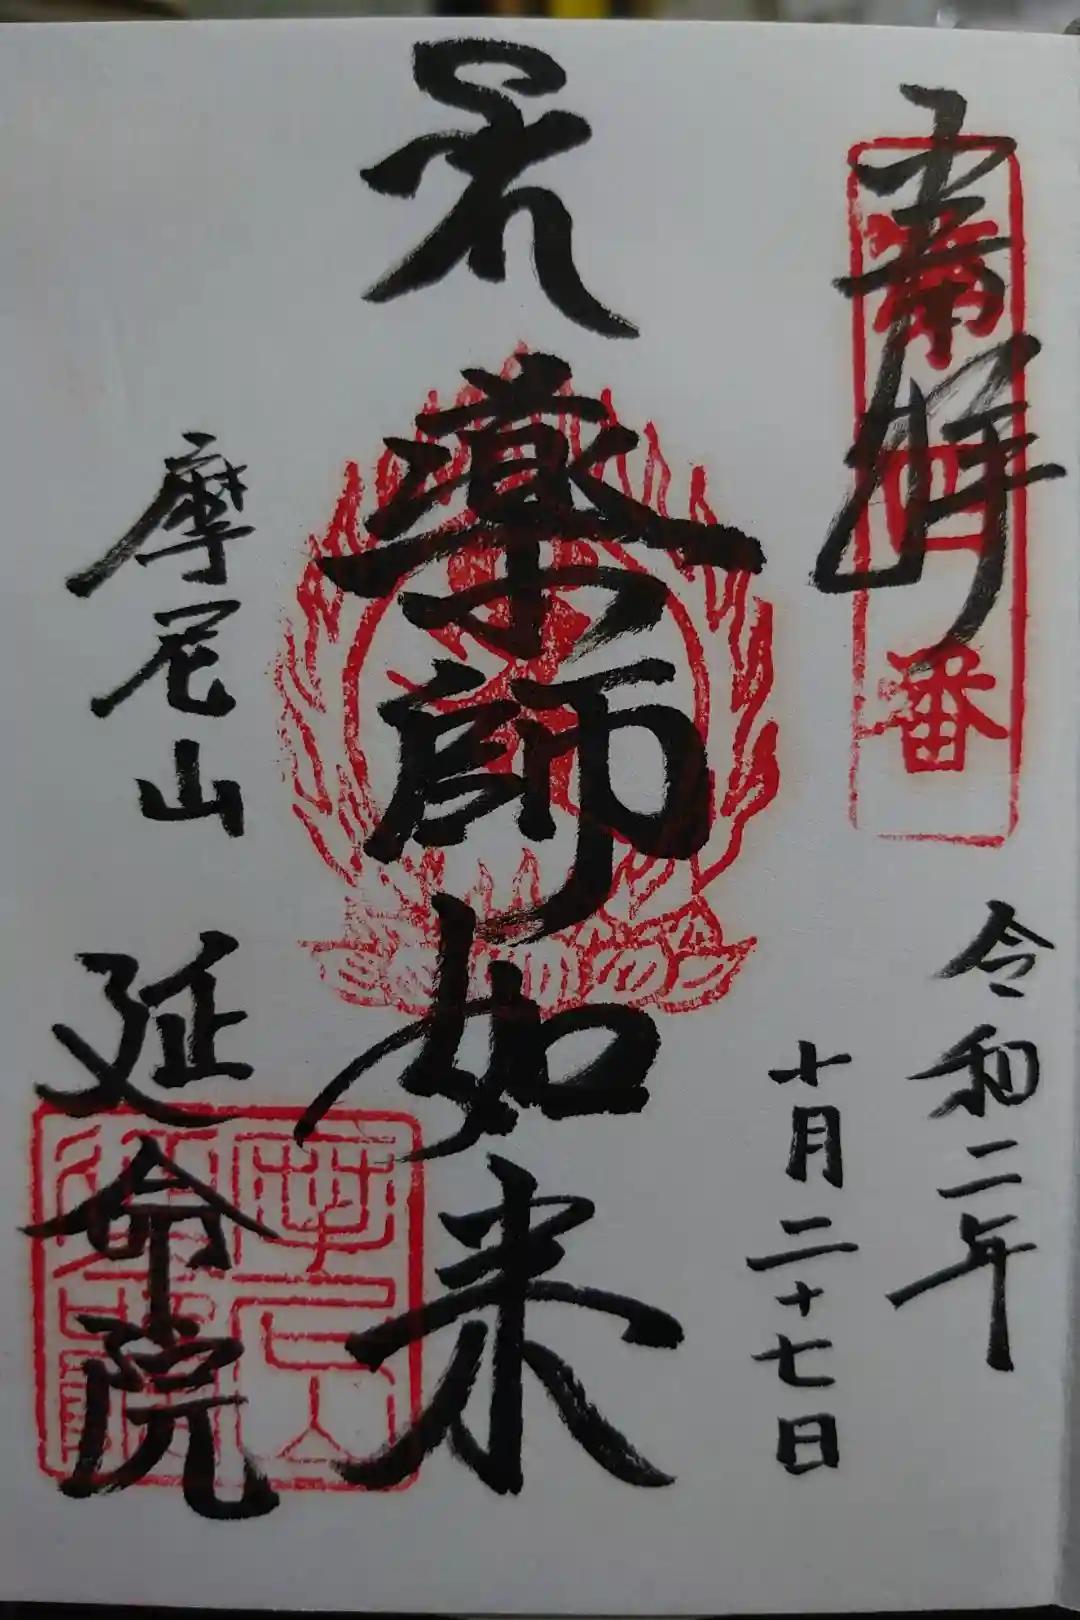 奉拝
第四番
令和二年
十月二十七日
薬師如来
摩尼山 延命院